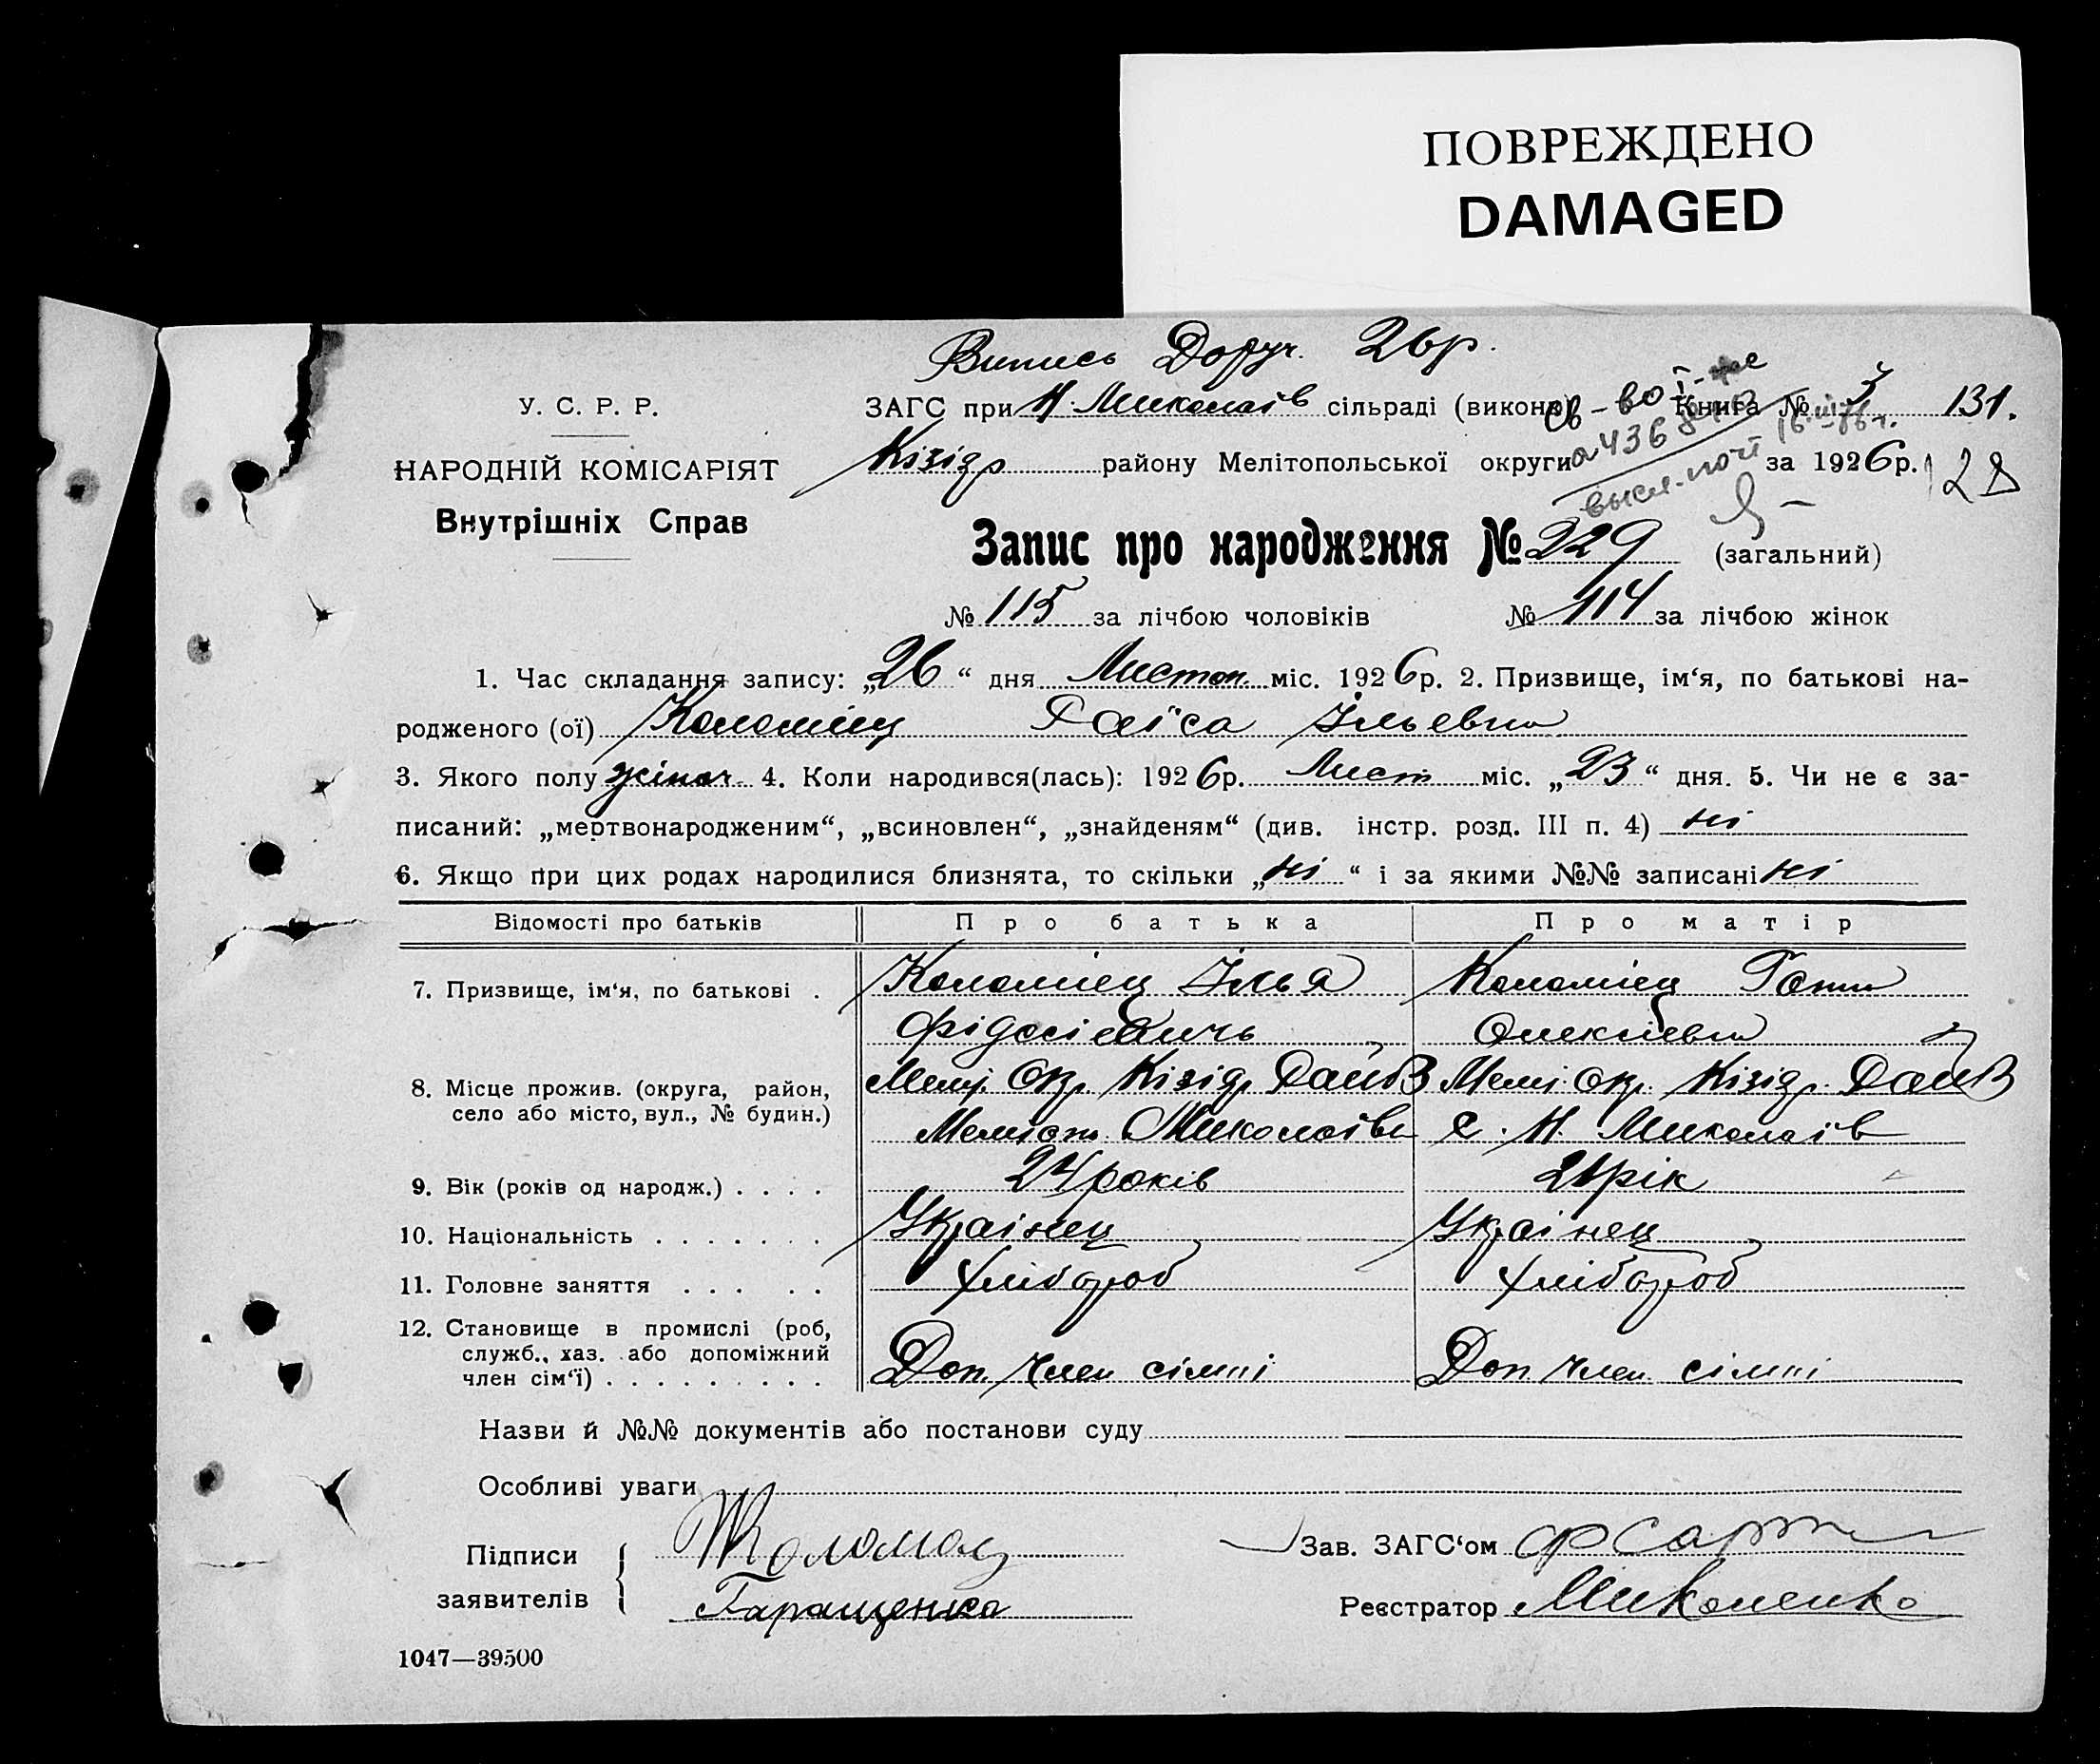 ПОВРЕЖДЕНО
DAMAGED
Випись Доруч. 26р.
У. С. Р. Р.
НАРОДНІЙ КОМІСАРІЯТ
Внутрішніх Справ
ЗАГС при Н. Миколаїв сільраді (викона) Книга № 3 131.
Кізідр району Мелітопольської округи за 1926р. 128
Запис про народження № 229 (загальний)
№ 115 за лічбою чоловіків № 114 за лічбою жінок
1. Час складання запису: „26“ дня Листоп. міс. 1926р. 2. Призвище, ім‘я, по батькові на-
родженого (ої) Коломіец Раїса Ільевна
3. Якого полу жіноч. 4. Коли народився(лась): 1926р. Лист міс. „23“ дня. 5. Чи не є за-
писаний: „мертвонародженим“, „всиновлен“, „знайденям“ (див. інстр. розд. III п. 4) ні
6. Якщо при цих родах народилися близнята, то скільки „ні“ і за якими №№ записані ні
Відомості про батьків Про батька Про матір
7. Призвище, ім‘я, по батькові . Коломіец Ілья Коломіец
Фідосіевичь Олексіевна
8. Місце прожив. (округа, район, Меліт. Окр. Кізідр. Район Меліт. Окр. Кізідр. Район
село або місто, вул., № будин.) Миколаївк с. Н. Миколаів
9. Вік (років од народж.) . . . . 24 років 21 рік
10. Національність . . . . . . . Украінец Украінец
11. Головне заняття . . . . . Хлібороб Хлібороб
12. Становище в промислі (роб,
служб., хаз. або допоміжний
член сім‘ї) . . . . . . . . . Доп. член сімпі Доп член сімпі
Назви й №№ документів або постанови суду
Особливі уваги
Підписи
заявителів
Гаращенко
Зав. ЗАГС‘ом
Реєстратор Миколенко
1047—39500